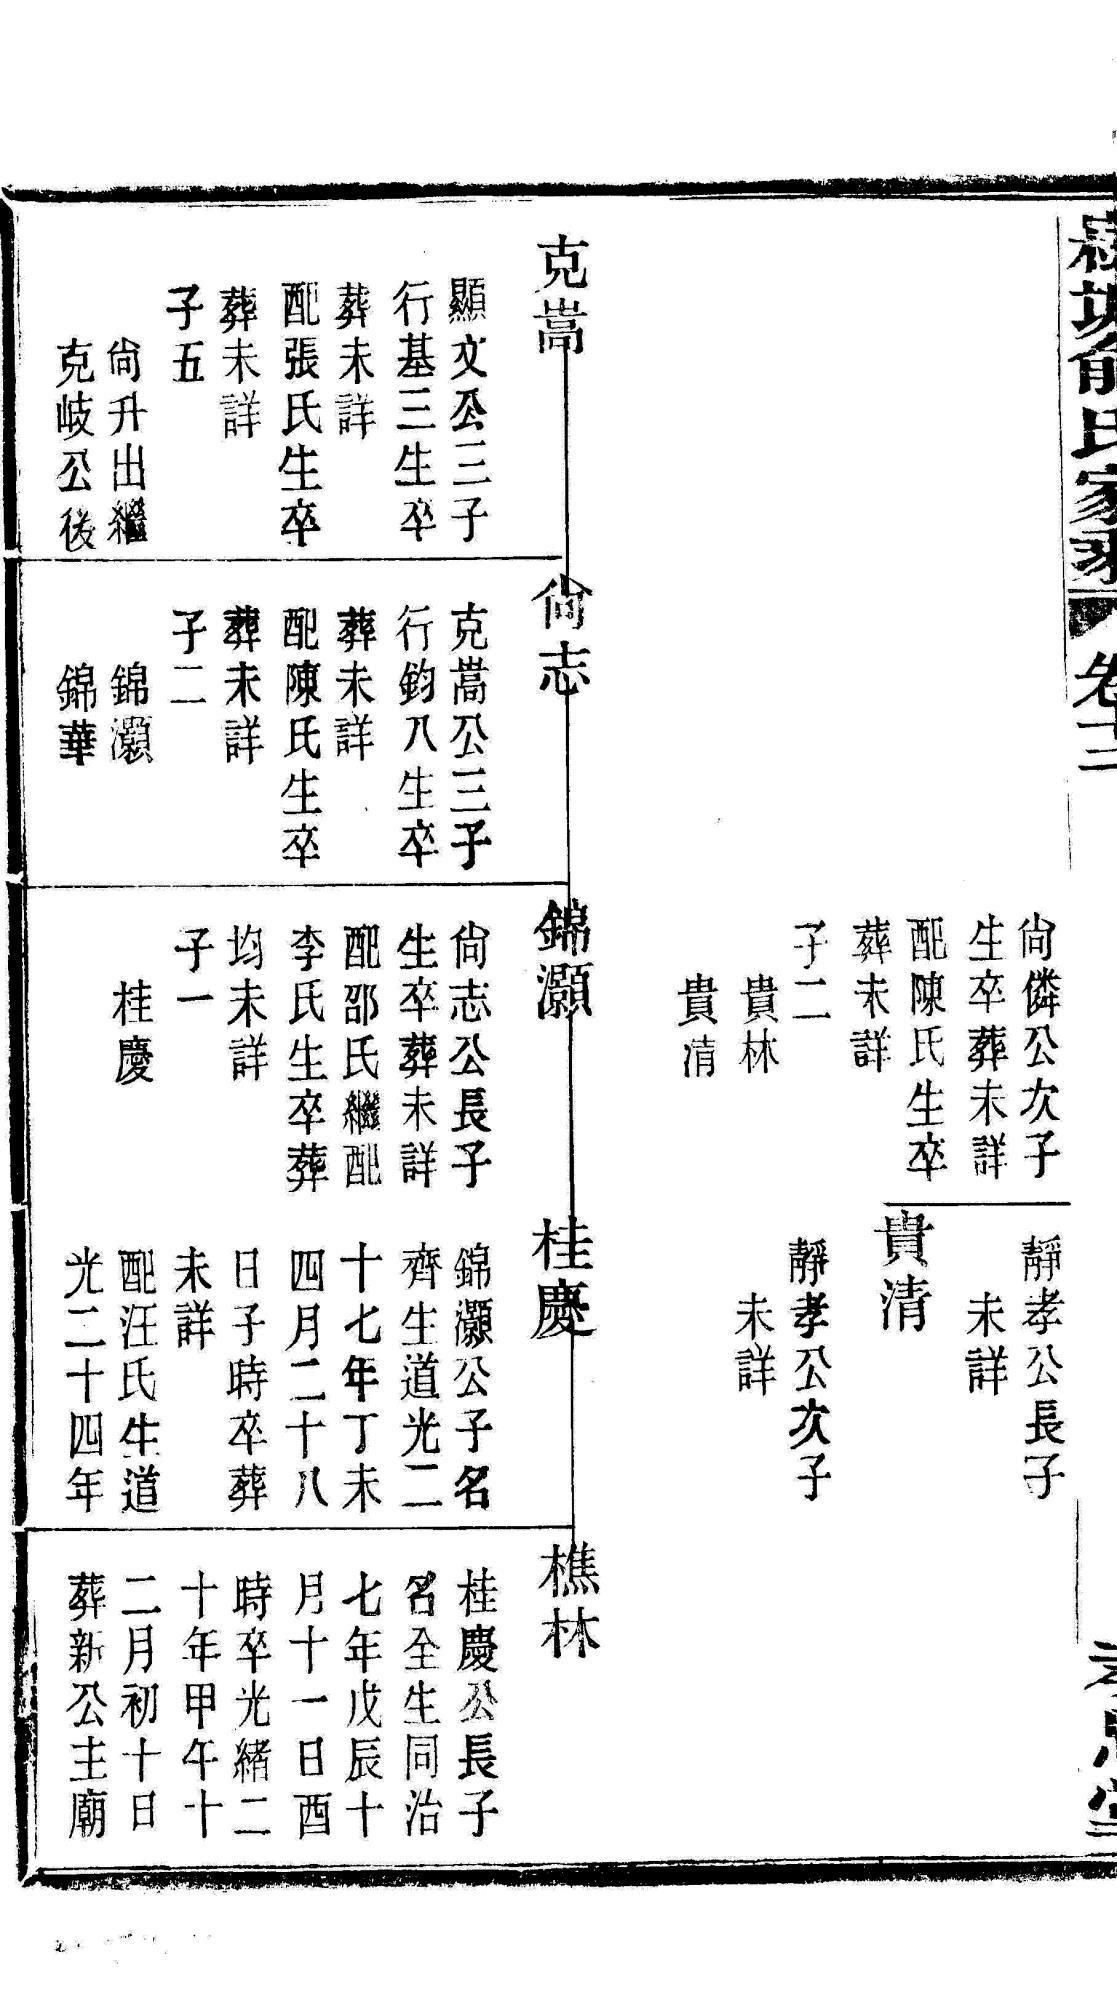 俞氏家乘
卷十三
尙僯公次子
生卒葬未詳
配陳氏生卒
葬未詳
子二
貴林
貴清
靜孝公長子
未詳
貴清
靜孝公次子
未詳
克嵩
顯文公三子
行基三生卒
葬未詳
配張氏生卒
葬未詳
子五
尙升出繼
克岐公後
尙志
克嵩公三子
行鈞八生卒
葬未詳
配陳氏生卒
葬未詳
子二
錦灝
錦華
錦灝
尙志公長子
生卒葬未詳
配邵氏繼配
李氏生卒葬
均未詳
子一
桂慶
桂慶
錦灝公子名
齊生道光二
十七年丁未
四月二十八
日子時卒葬
未詳
配汪氏生道
光二十四年
樵林
桂慶公長子
名全生同治
七年戊辰十
月十一日酉
時卒光緒二
十年甲午十
二月初十日
葬新公主廟